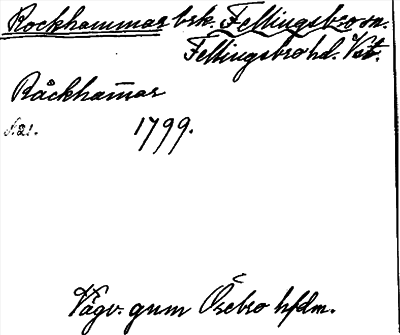 Rockhammar brk. Fellingsbro sn.
Fellingsbro hd. Vst.
Råckham̄ar
s. 21. 1799.
Vägv. gnm Örebro hfdm.